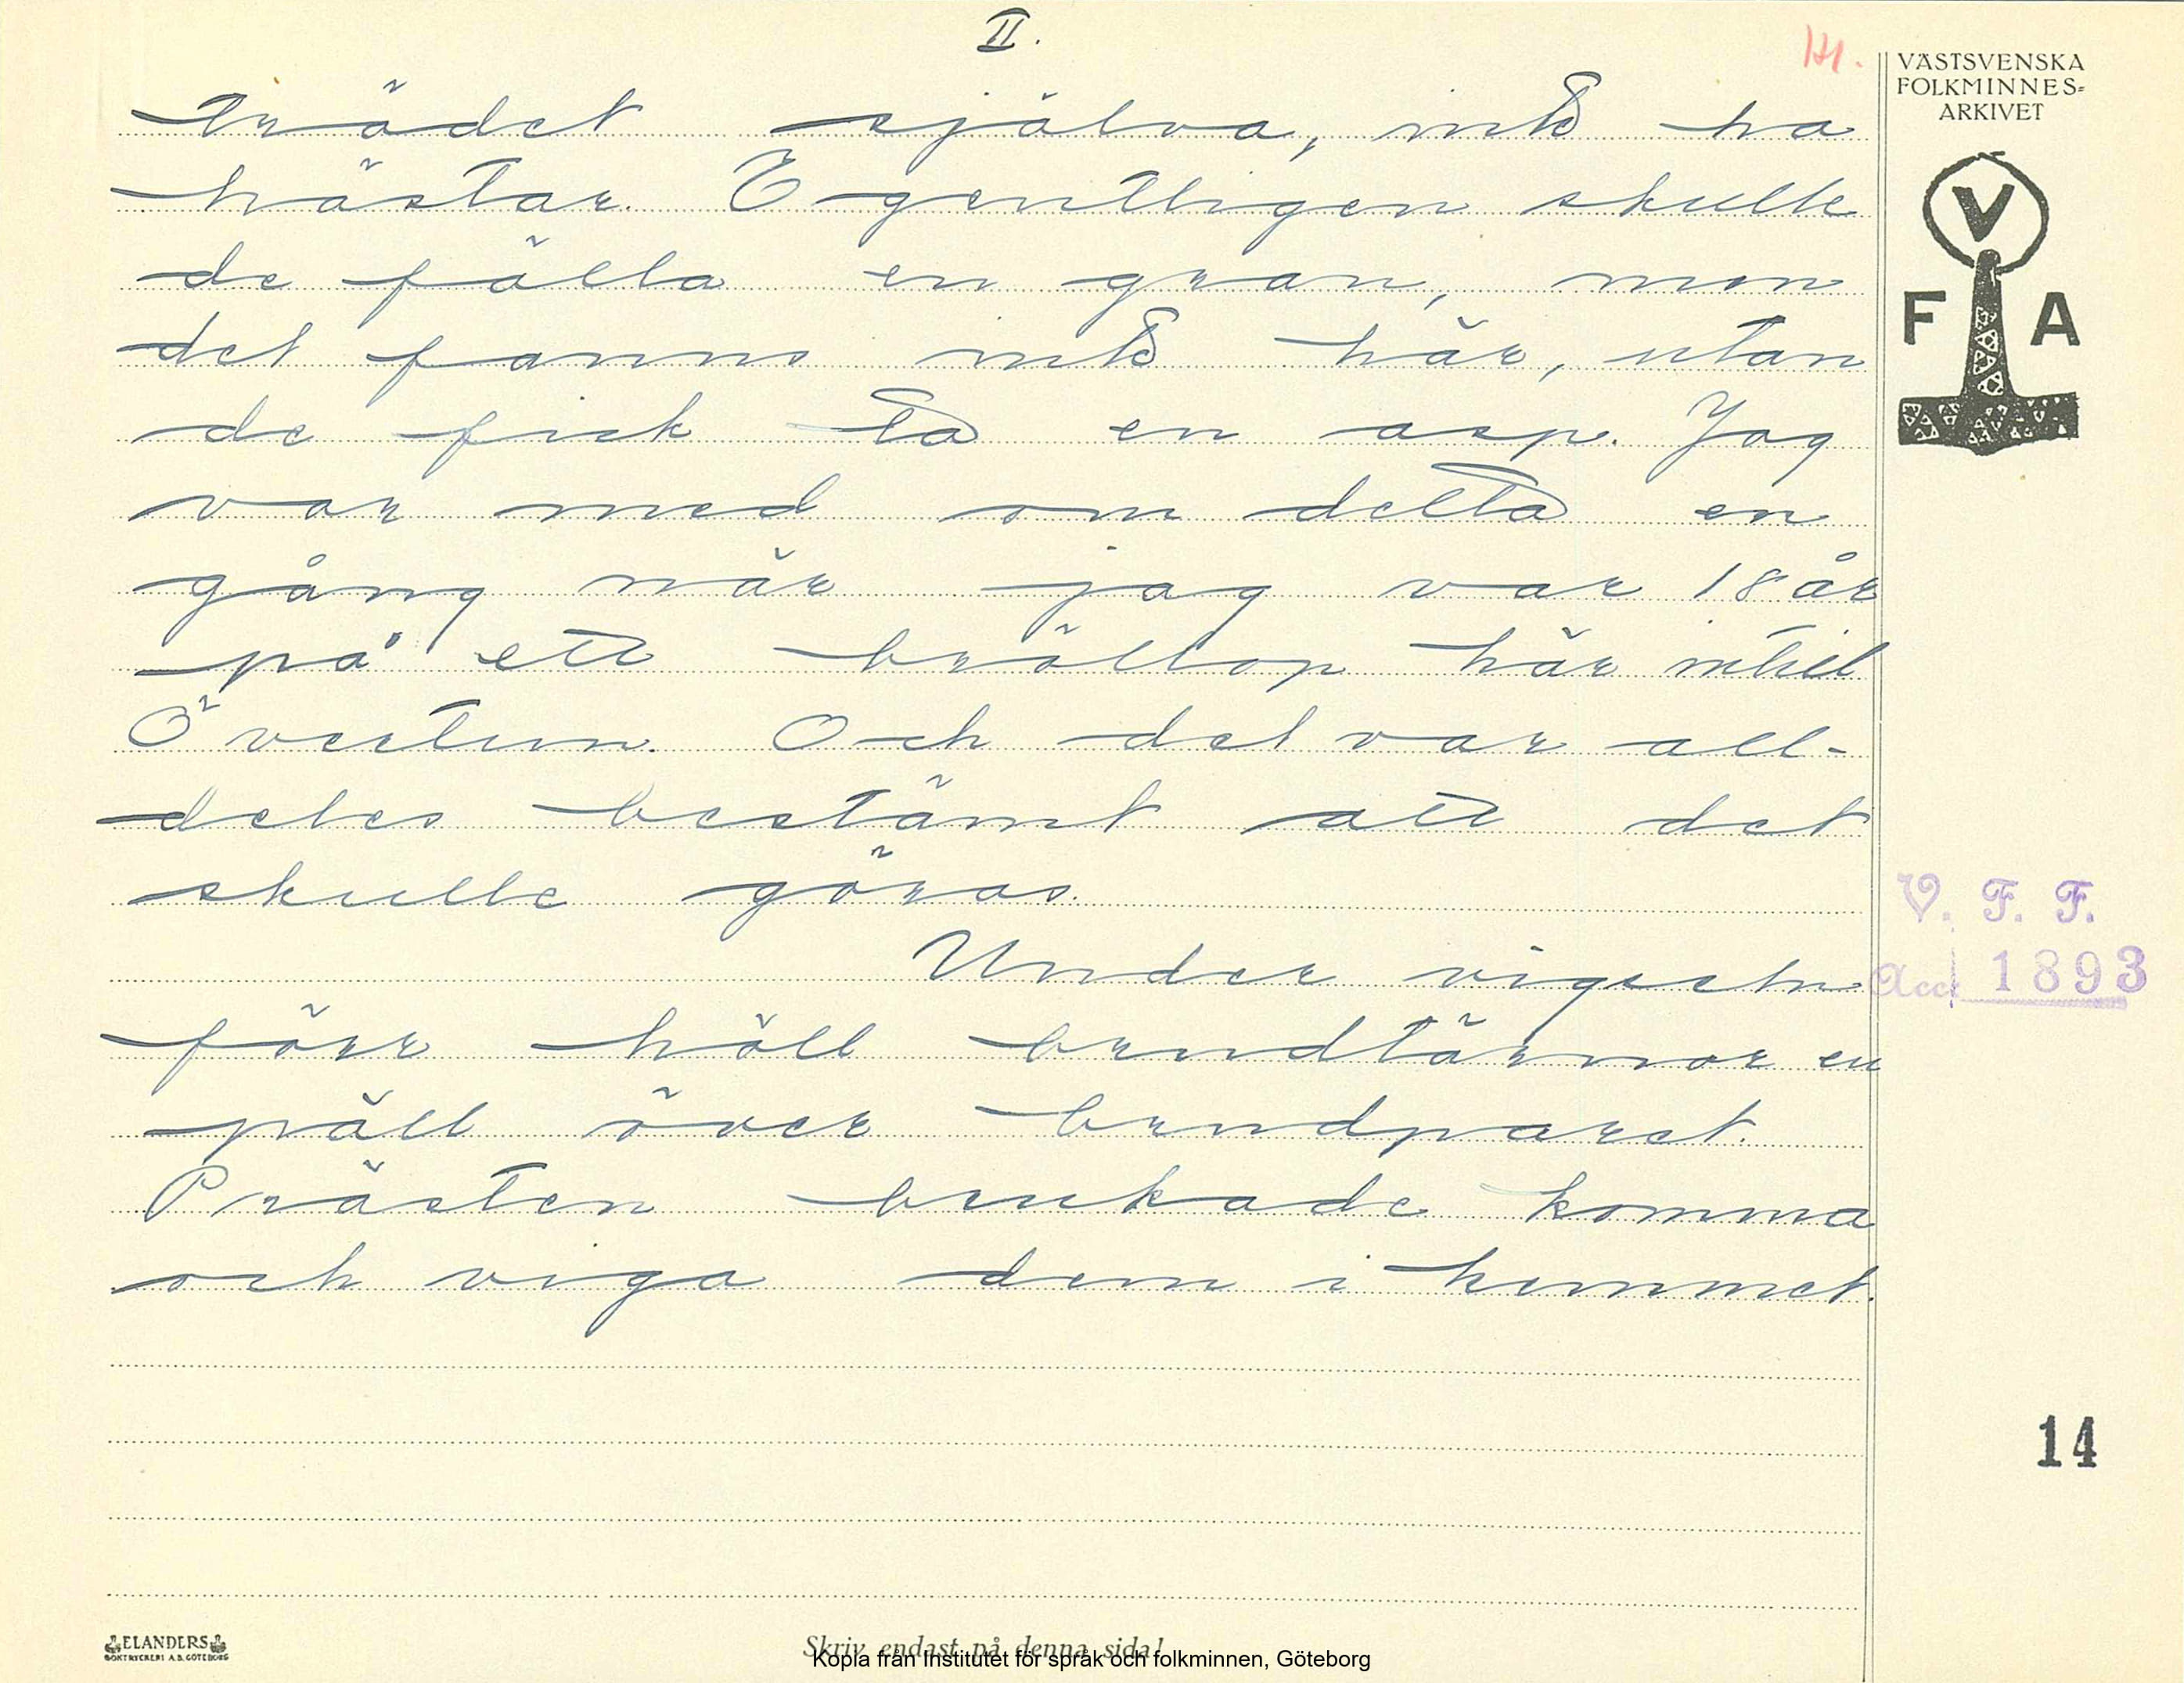 II.
141.
VÄSTSVENSKA
FOLKMINNES=
ARKIVET
V
F A
trädet själva, inte ha
hästar. Egentligen skulle
de fälla en gran, men
det fanns inte här, utan
de fick ta en asp. Jag
var med om detta en
gång när jag var 18 år
på ett bröllop här intill
Övertun. Och det var all-
deles bestämt att det
skulle göras.
Under vigseln
förr höll brudtärnor en
päll över brudparet.
Prästen brukade komma
och viga dem i hemmet.
V. F. F.
Acc. 1893
14
ELANDERS
BOKTRYCKERI A.B. GÖTEBORG
Skriv endast på denna sida!
Kopia från Institutet för språk och folkminnen, Göteborg